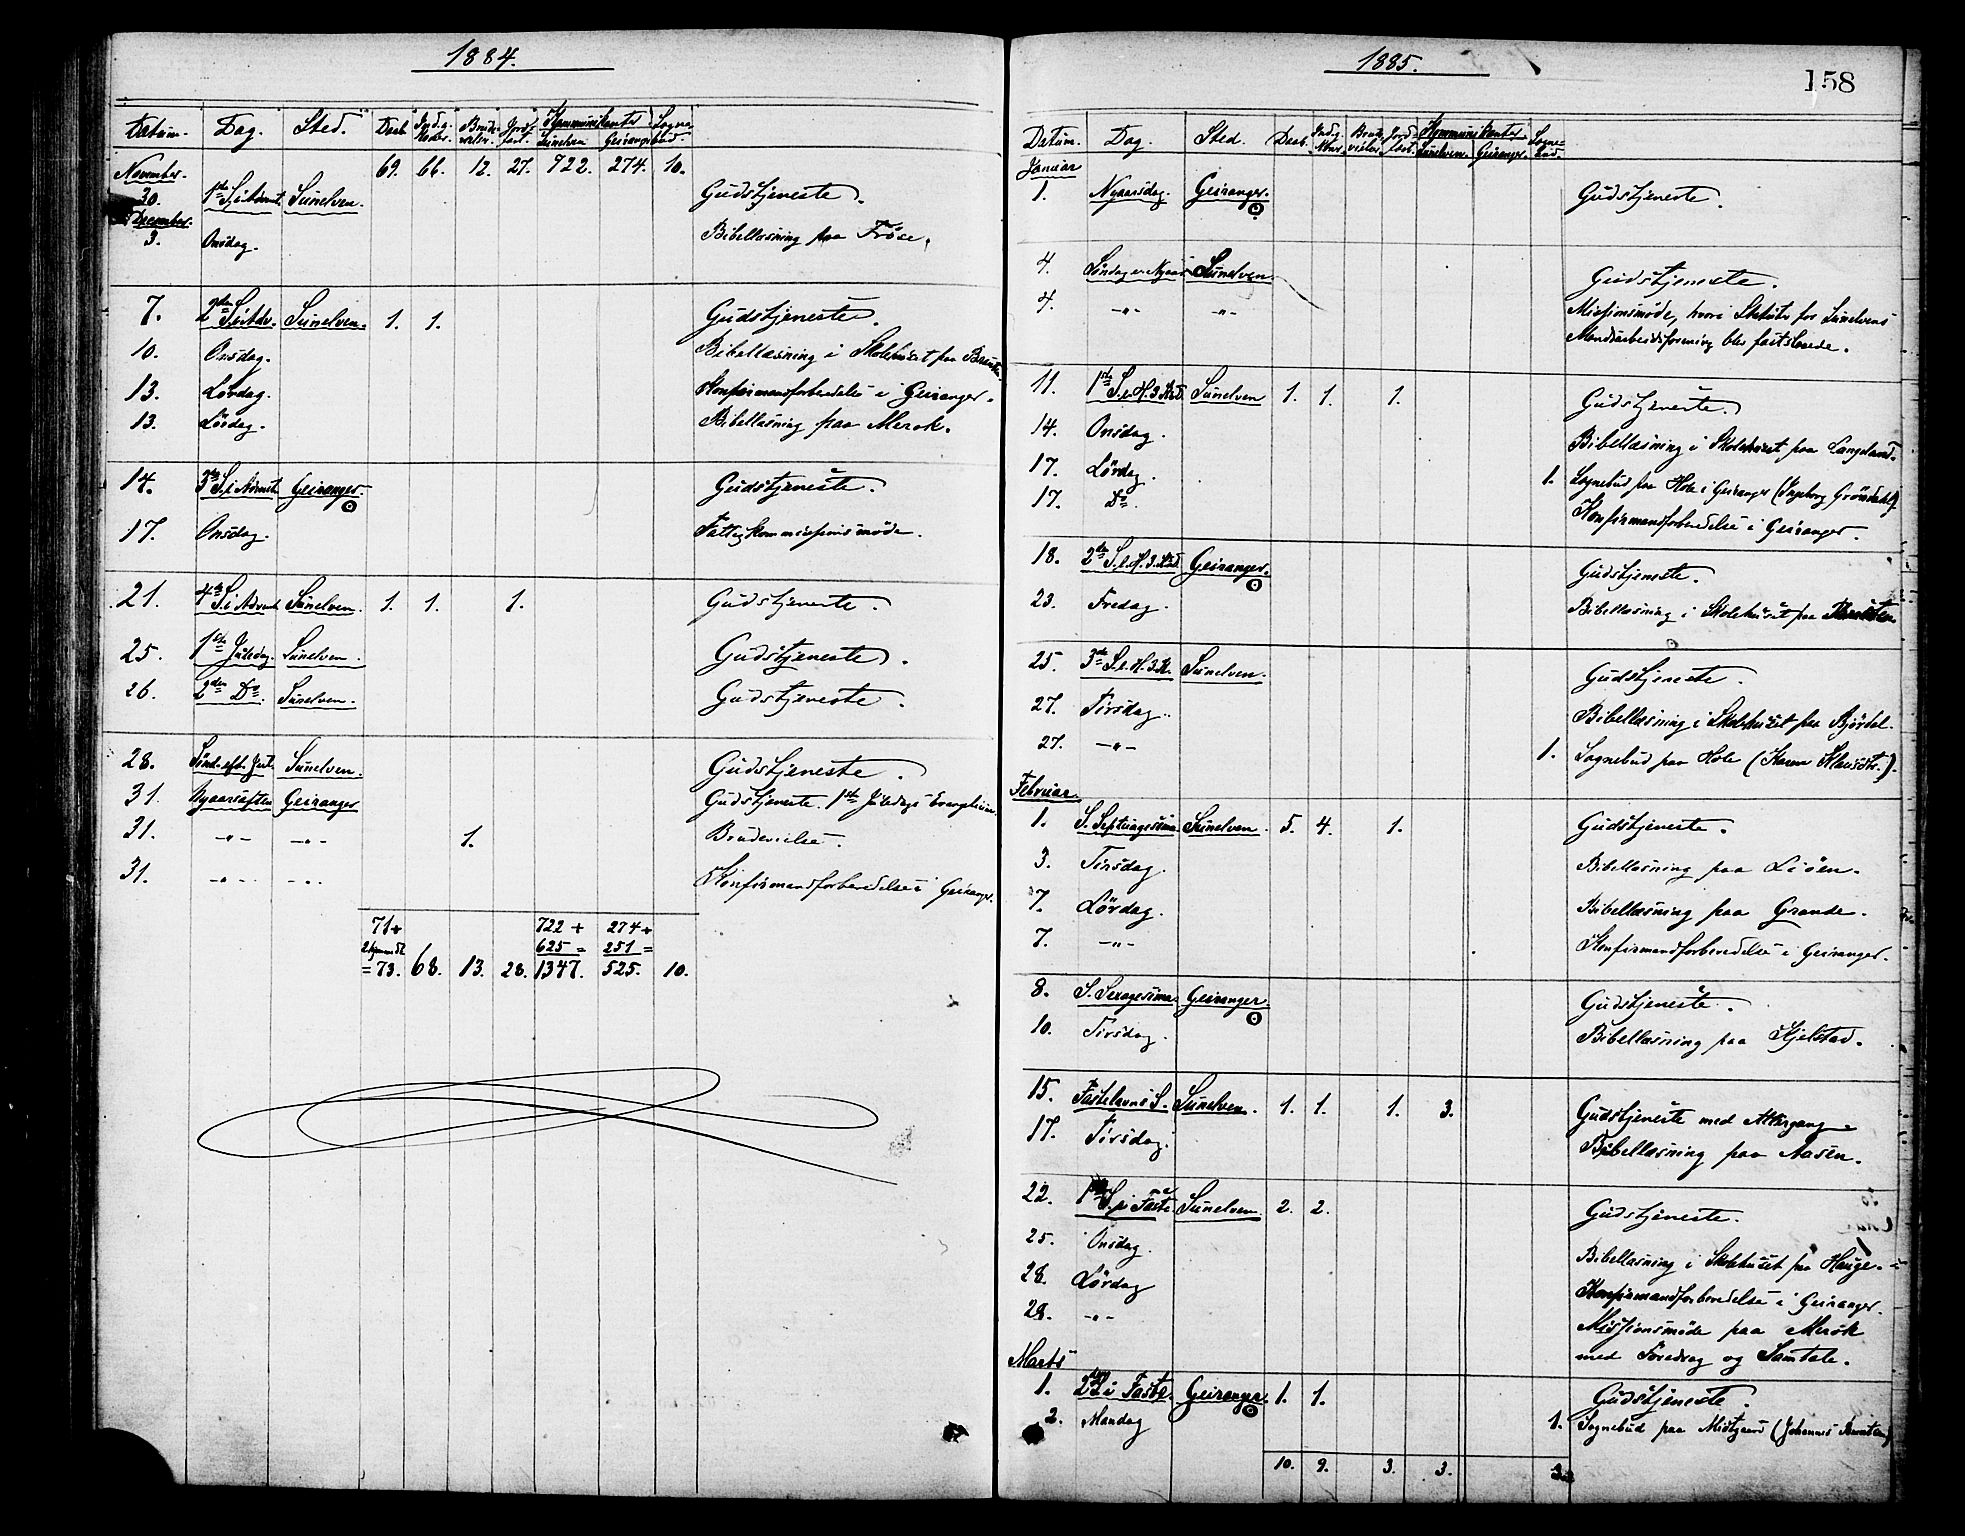 1884.
Datum. Dag. Sted. Daab Indg. Koner. Brude-vielser. Jord-fæst. Kommunikanter Sunelven Geiranger Sogne-bud.
November. 69. 66. 12. 27. 722. 274. 10.
30. 1ste S. i Advent Sunelven. Gudstjeneste.
December.
3. Onsdag. Bibellæsning paa Frøse.
7. 2den S. i Adv. Sunelven. 1. 1. Gudstjeneste.
10. Onsdag. Bibellæsning i Skolehuset paa
13. Lørdag. Konfirmandforberedelse i Geiranger.
13. Lørdag. Bibellæsning paa Merok.
14. 3die S. i Advent Geiranger. Gudstjeneste.
17. Onsdag. Fattigkommissionsmøde.
21. 4de S. i Advent Sunelven. 1. 1. 1. Gudstjeneste.
25. 1ste Juledag. Sunelven. Gudstjeneste.
26. 2den Do. Sunelven. Gudstjeneste.
28. Sønd. eft. Jul. Sunelven. Gudstjeneste.
31. Nyaarsaften Geiranger Gudstjeneste. 1ste Juledags Evangelium.
31. -"- -"- 1. Brudevielse.
31. -"- -"- Konfirmandforberedelse i Geiranger.
71+ 722+ 274+
2 hjemmedt. 625= 251=
=73. 68. 13. 28. 1347. 525. 10.
1885.
158
Datum. Dag. Sted. Daab. Indg. Koner. Brude-vielser. Jord-fæst. Kommunikanter. Sunelven. Geiranger. Sogne-bud.
Januar
1. Nyaarsdag. Geiranger. Gudstjeneste.
4. Søndag e. Nyaar Sunelven. Gudstjeneste.
4. -"- -"- Missionsmøde, hvori Statuter for Sunelvens
Mandsarbeidsforening blev fastsatte.
11. 1ste S. e. H. 3 Kd. Sunelven 1. 1. 1. Gudstjeneste.
14. Onsdag. Bibellæsning i Skolehuset paa Langeland.
17. Lørdag. 1. Sognebud paa Hole i Geiranger (Ingeborg Grøndahl)
17. Do. Konfirmandforberedelse i Geiranger.
18. 2den S. e. H. 3. Kd. Geiranger. Gudstjeneste.
23. Fredag. Bibellæsning i Skolehuset paa
25. 3die S. e. H. 3. K. Sunelven. Gudstjeneste.
27. Tirsdag. Bibellæsning i Skolehuset paa Bjørdal.
27. -"- 1. Sognebud paa Hole (Karen Klausdtr.).
Februar.
1. S. Septuagesima. Sunelven. 5. 4. 1. Gudstjeneste.
3. Tirsdag. Bibellæsning paa Liøen.
7. Lørdag. Bibellæsning paa Grande.
7. -"- Konfirmandforberedelse i Geiranger.
8. S. Sexagesima Geiranger. Gudstjeneste.
10. Tirsdag. Bibellæsning paa Kjelstad.
15. Fastelavns S. Sunelven. 1. 1. 1. 3. Gudstjeneste med Altergang.
17. Tirsdag. Bibellæsning paa Aasen.
22. 1ste S. i Faste Sunelven. 2. 2. Gudstjeneste.
25. Onsdag. Bibellæsning i Skolehuset paa Hauge.
28. Lørdag Konfirmandforberedelse i Geiranger.
28. -"- Missionsmøde paa Merok
med Foredrag og Samtale.
Marts
1. 2den S. i Faste. Geiranger. 1. 1. Gudstjeneste.
2. Mandag 1. Sognebud paa Møltgaard (Johannes Knutsen)
10. 9. 3. 3. 3.